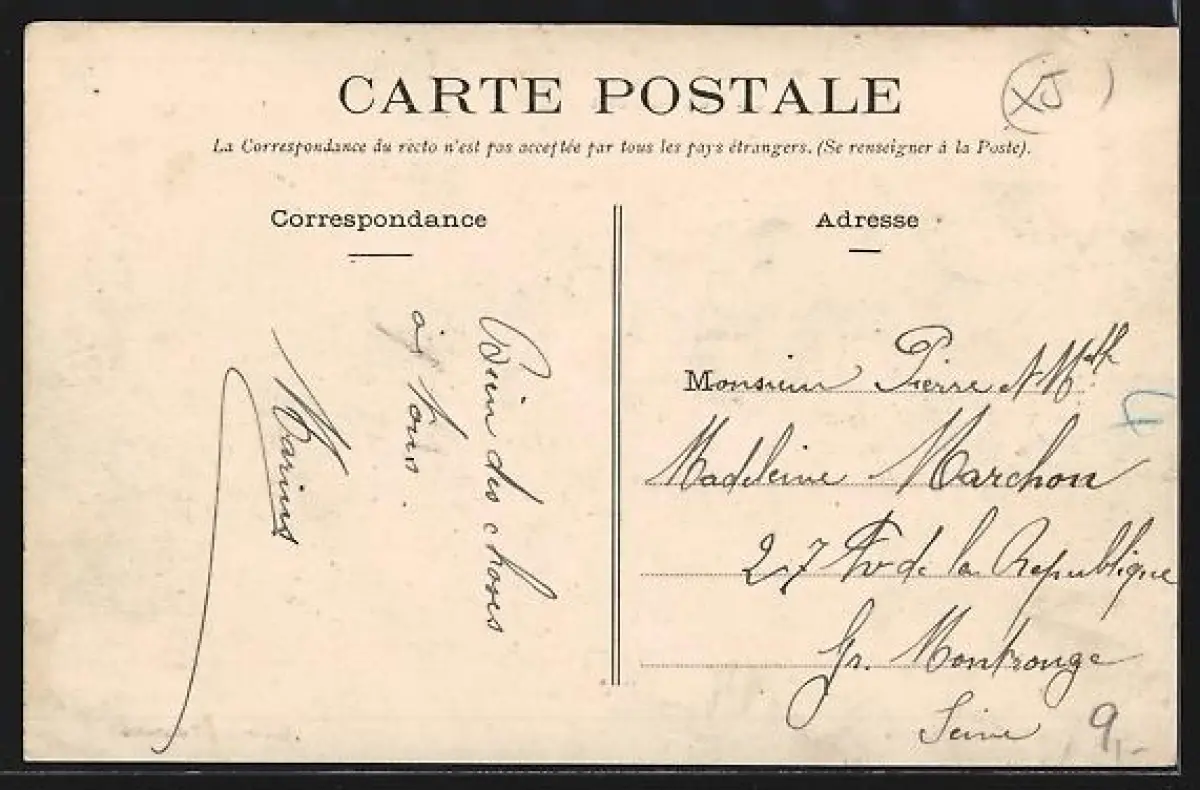 CARTE POSTALE
La Correspondance du recto n'est pas acceptée par tous les pays étrangers. (Se renseigner à la Poste).
Correspondance
Bien des choses
à tous.
Marius
Adresse
Monsieur Pierre et Melle
Madeleine Marchon
27 Av de la Republique
Gr. Montrouge
Seine
9,-